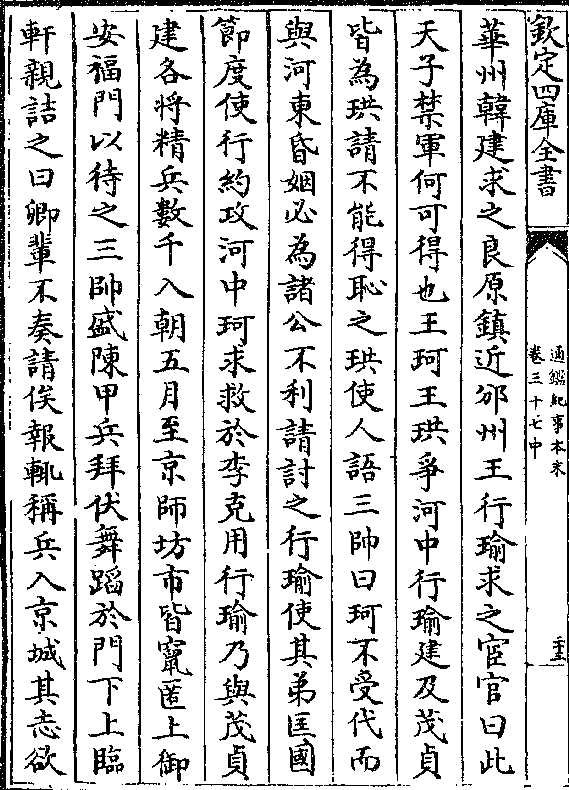 欽定四庫全書
通鑑紀事本末
卷三十七中
華州韓建求之良原鎮近邠州王行瑜求之宦官曰此
天子禁軍何可得也王珂王珙爭河中行瑜建及茂貞
皆為珙請不能得恥之珙使人語三帥曰珂不受代而
與河東昏姻必為諸公不利請討之行瑜使其弟匡國
節度使行約攻河中珂求救於李克用行瑜乃與茂貞
建各將精兵數千入朝五月至京師坊市皆竄匿上御
安福門以待之三帥盛陳甲兵拜伏舞蹈於門下上臨
軒親詰之曰卿輩不奏請俟報輒稱兵入京城其志欲